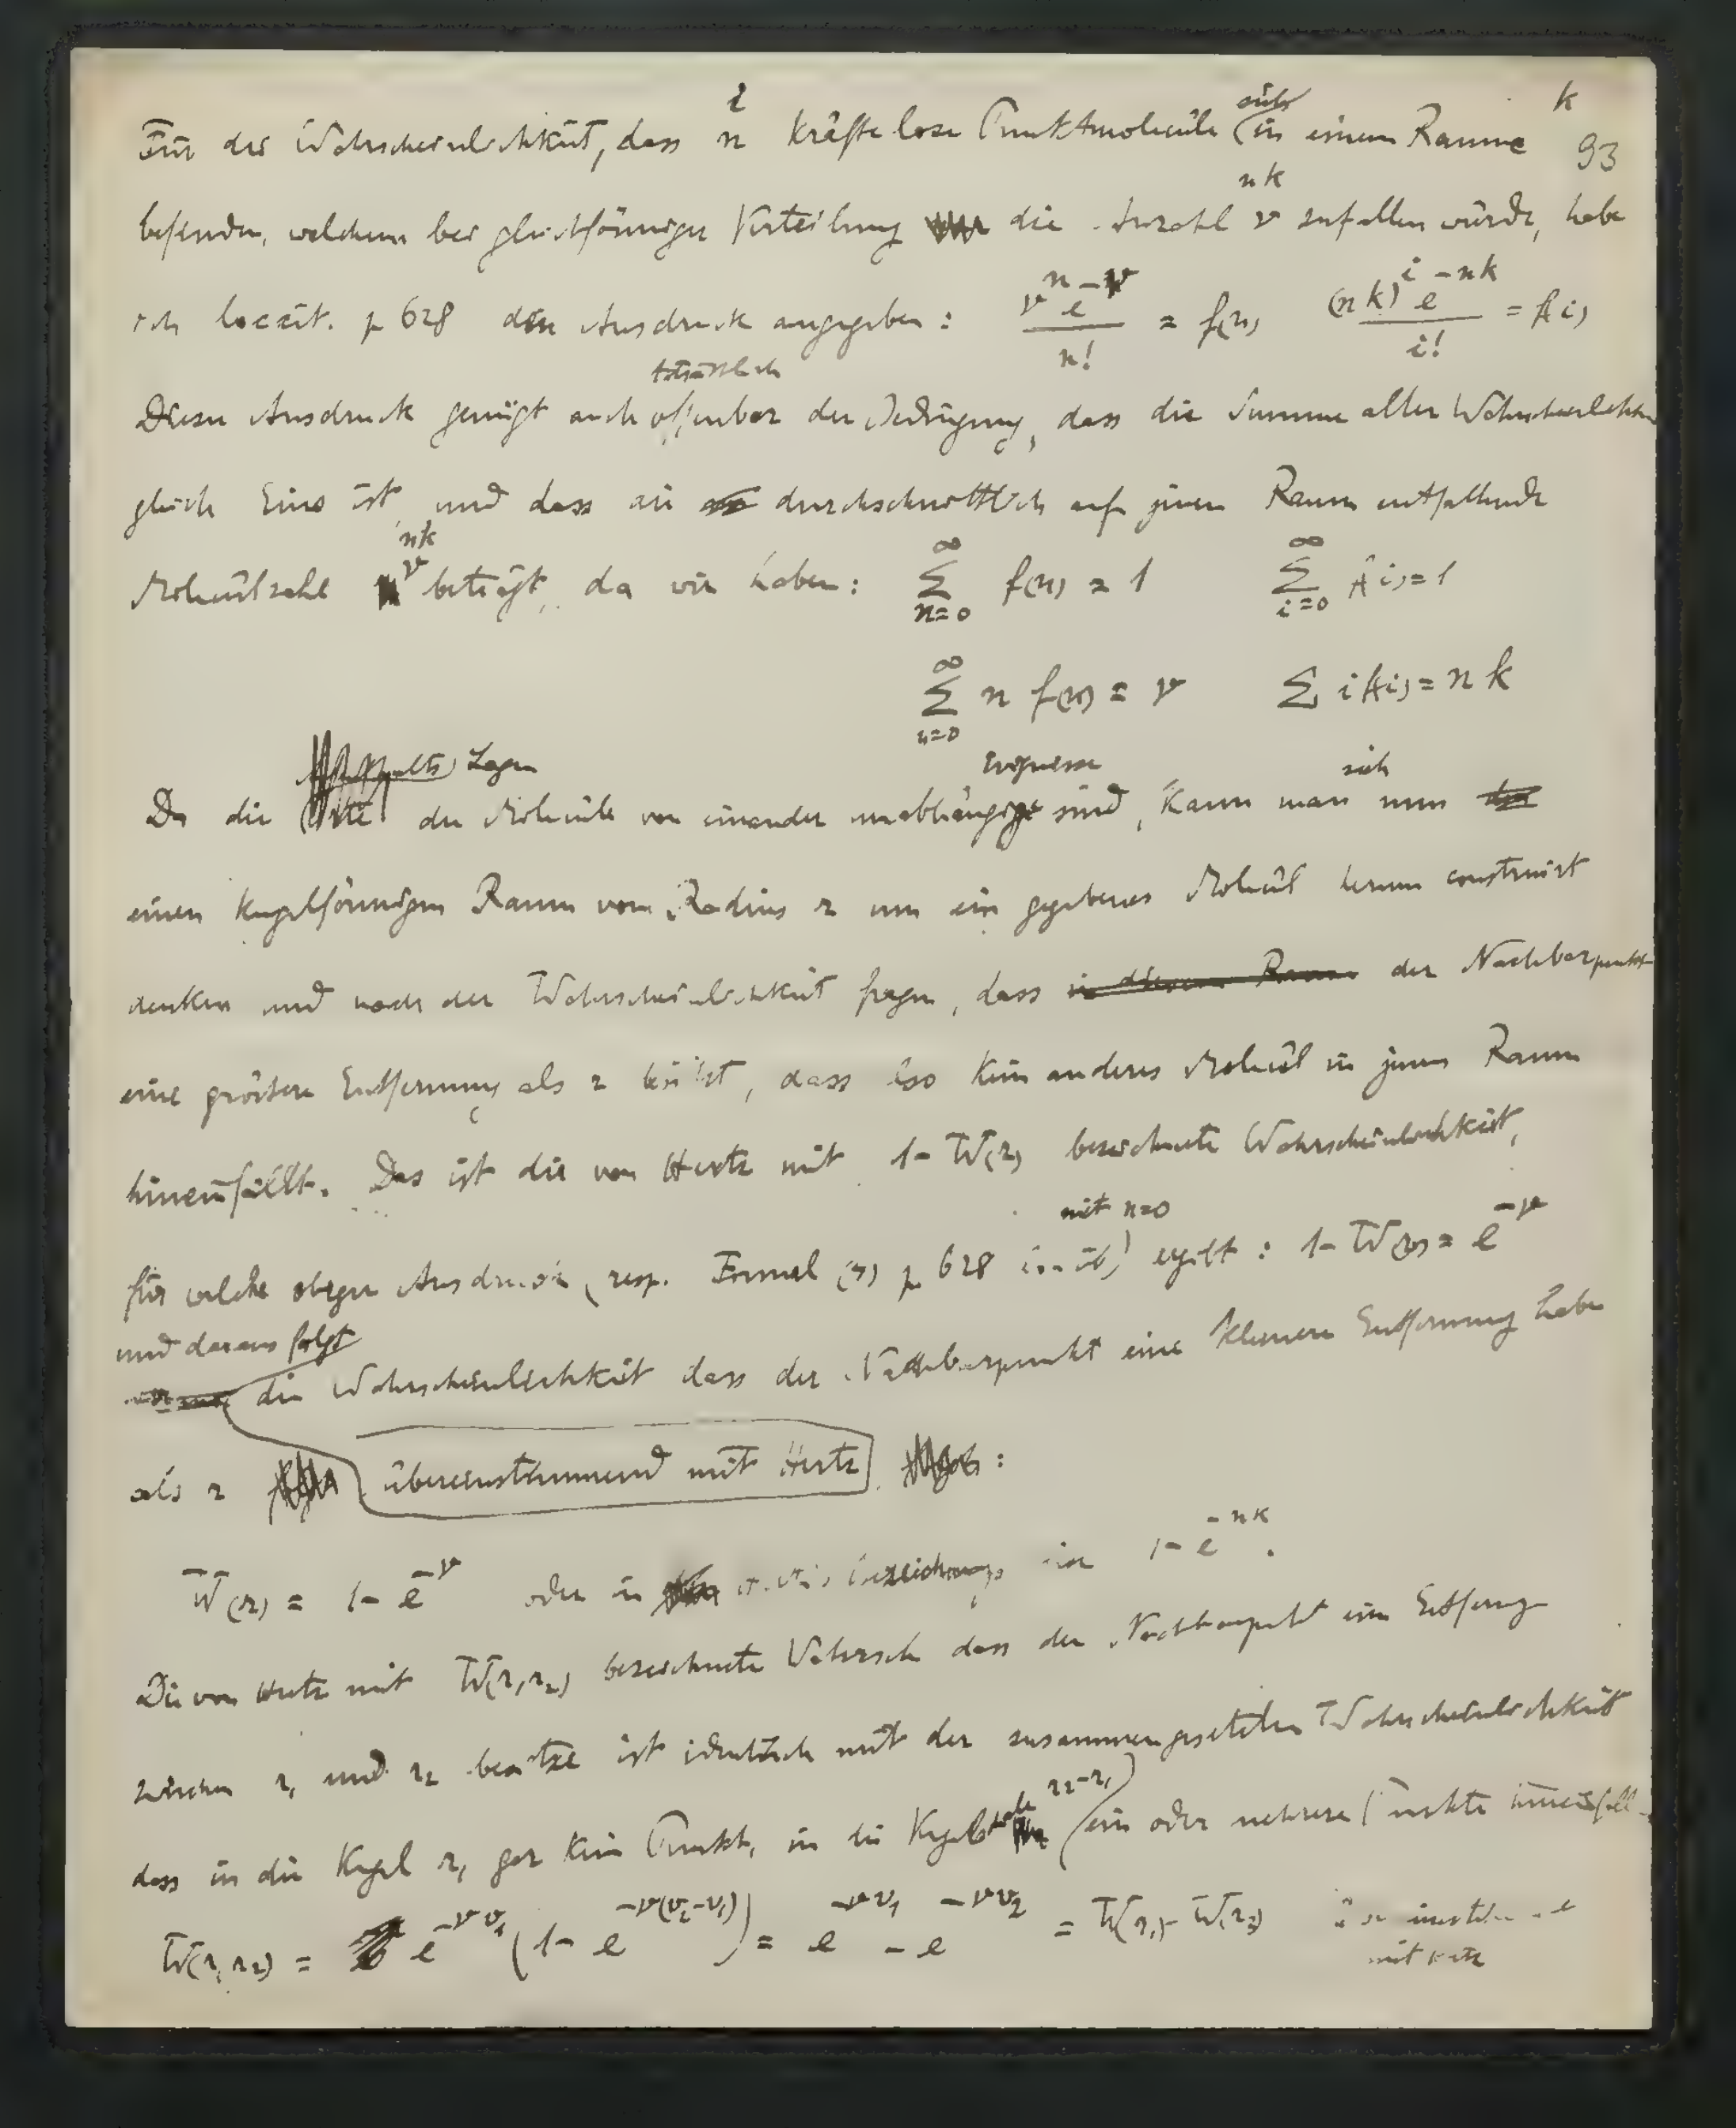 i sich k
Für die Wahrscheinlichkeit, dass n kräftelose Punktmoleküle in einem Raume 93
nk
befinden, welchem bei gleichförmiger Verteilung die Anzahl ν zufallen würde, habe
ich loc cit. p 628 den Ausdruck angegeben: ν^n e^-ν / n! = f(n) (nk)^i e^-nk / i! = f(i)
tatsächlich
Dieser Ausdruck genügt auch offenbar der Bedingung, dass die Summe aller Wahrscheinlichk
gleich Eins ist, und dass die durchschnittlich auf jenen Raum entfallende
nk
Molekülzahl ν beträgt, da wir haben: ∞∑n=0 f(n) = 1 ∞∑i=0 f(i) = 1
∞∑n=0 n f(n) = ν ∑ i f(i) = n k
Lagen Ereignisse sich
Da die der Moleküle von einander unabhängige sind, kann man nun
einen kugelförmigen Raum vom Radius r um ein gegebenes Molekül herum construirt
denken und nach der Wahrscheinlichkeit fragen, dass in diesem Raum der Nachbarpunkt
eine grössere Entfernung als r besitzt, dass also kein anderes Molekül in jenen Raum
hineinfällt. Das ist die von Hertz mit 1-W(r) bezeichnete Wahrscheinlichkeit,
mit n=0
für welche obiger Ausdruck (resp. Formel (7) p 628 ergibt: 1-W(r) = e^-ν
und daraus folgt
die Wahrscheinlichkeit dass der Nachbarpunkt eine kleinere Entfernung habe
als r übereinstimmend mit Hertz :
W(r) = 1 - e^-ν oder in Bezeichnungs 1 - e^-nk.
Die von Hertz mit W(r1 r2) bezeichnete Wahrsch dass der Nachbarpunkt eine Entfernung
zwischen r1 und r2 besitze ist identisch mit der zusammengesetzten Wahrscheinlichkeit
r2-r1)
dass in die Kugel r1 gar kein Punkt, in die Kugelschale (ein oder mehrere Punkte
W(r1 r2) = e^-νv1 (1 - e^-ν(v2-v1)) = e^-νv1 - e^-νv2 = W(r1) - W(r2)
mit Hertz